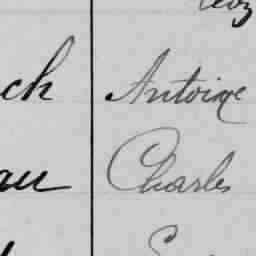 ch Antoine
au Charles